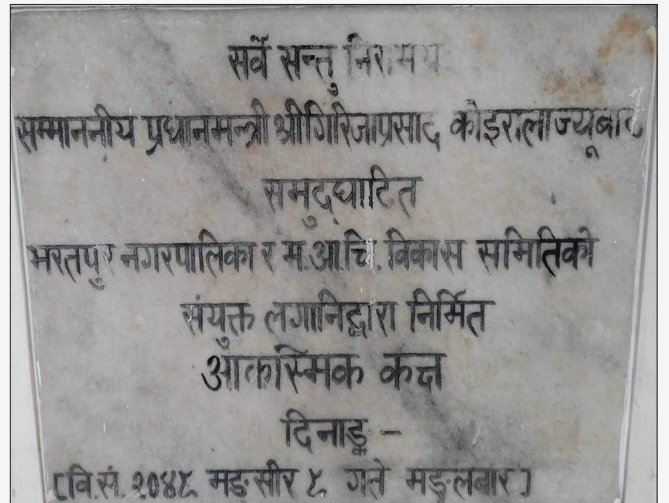 सर्वे सन्तु निरामय
सम्माननीय प्रधानमन्त्री श्रीगिरिजाप्रसाद कोइरालाज्यूबाट
समुद्घाटित
भरतपुर नगरपालिका र म.आ.चि. विकास समितिको
संयुक्त लगानिद्वारा निर्मित
आकस्मिक कक्ष
दिनाङ्क -
[वि.सं. २०४९ मङ्सीर ९ गते मङ्लबार]